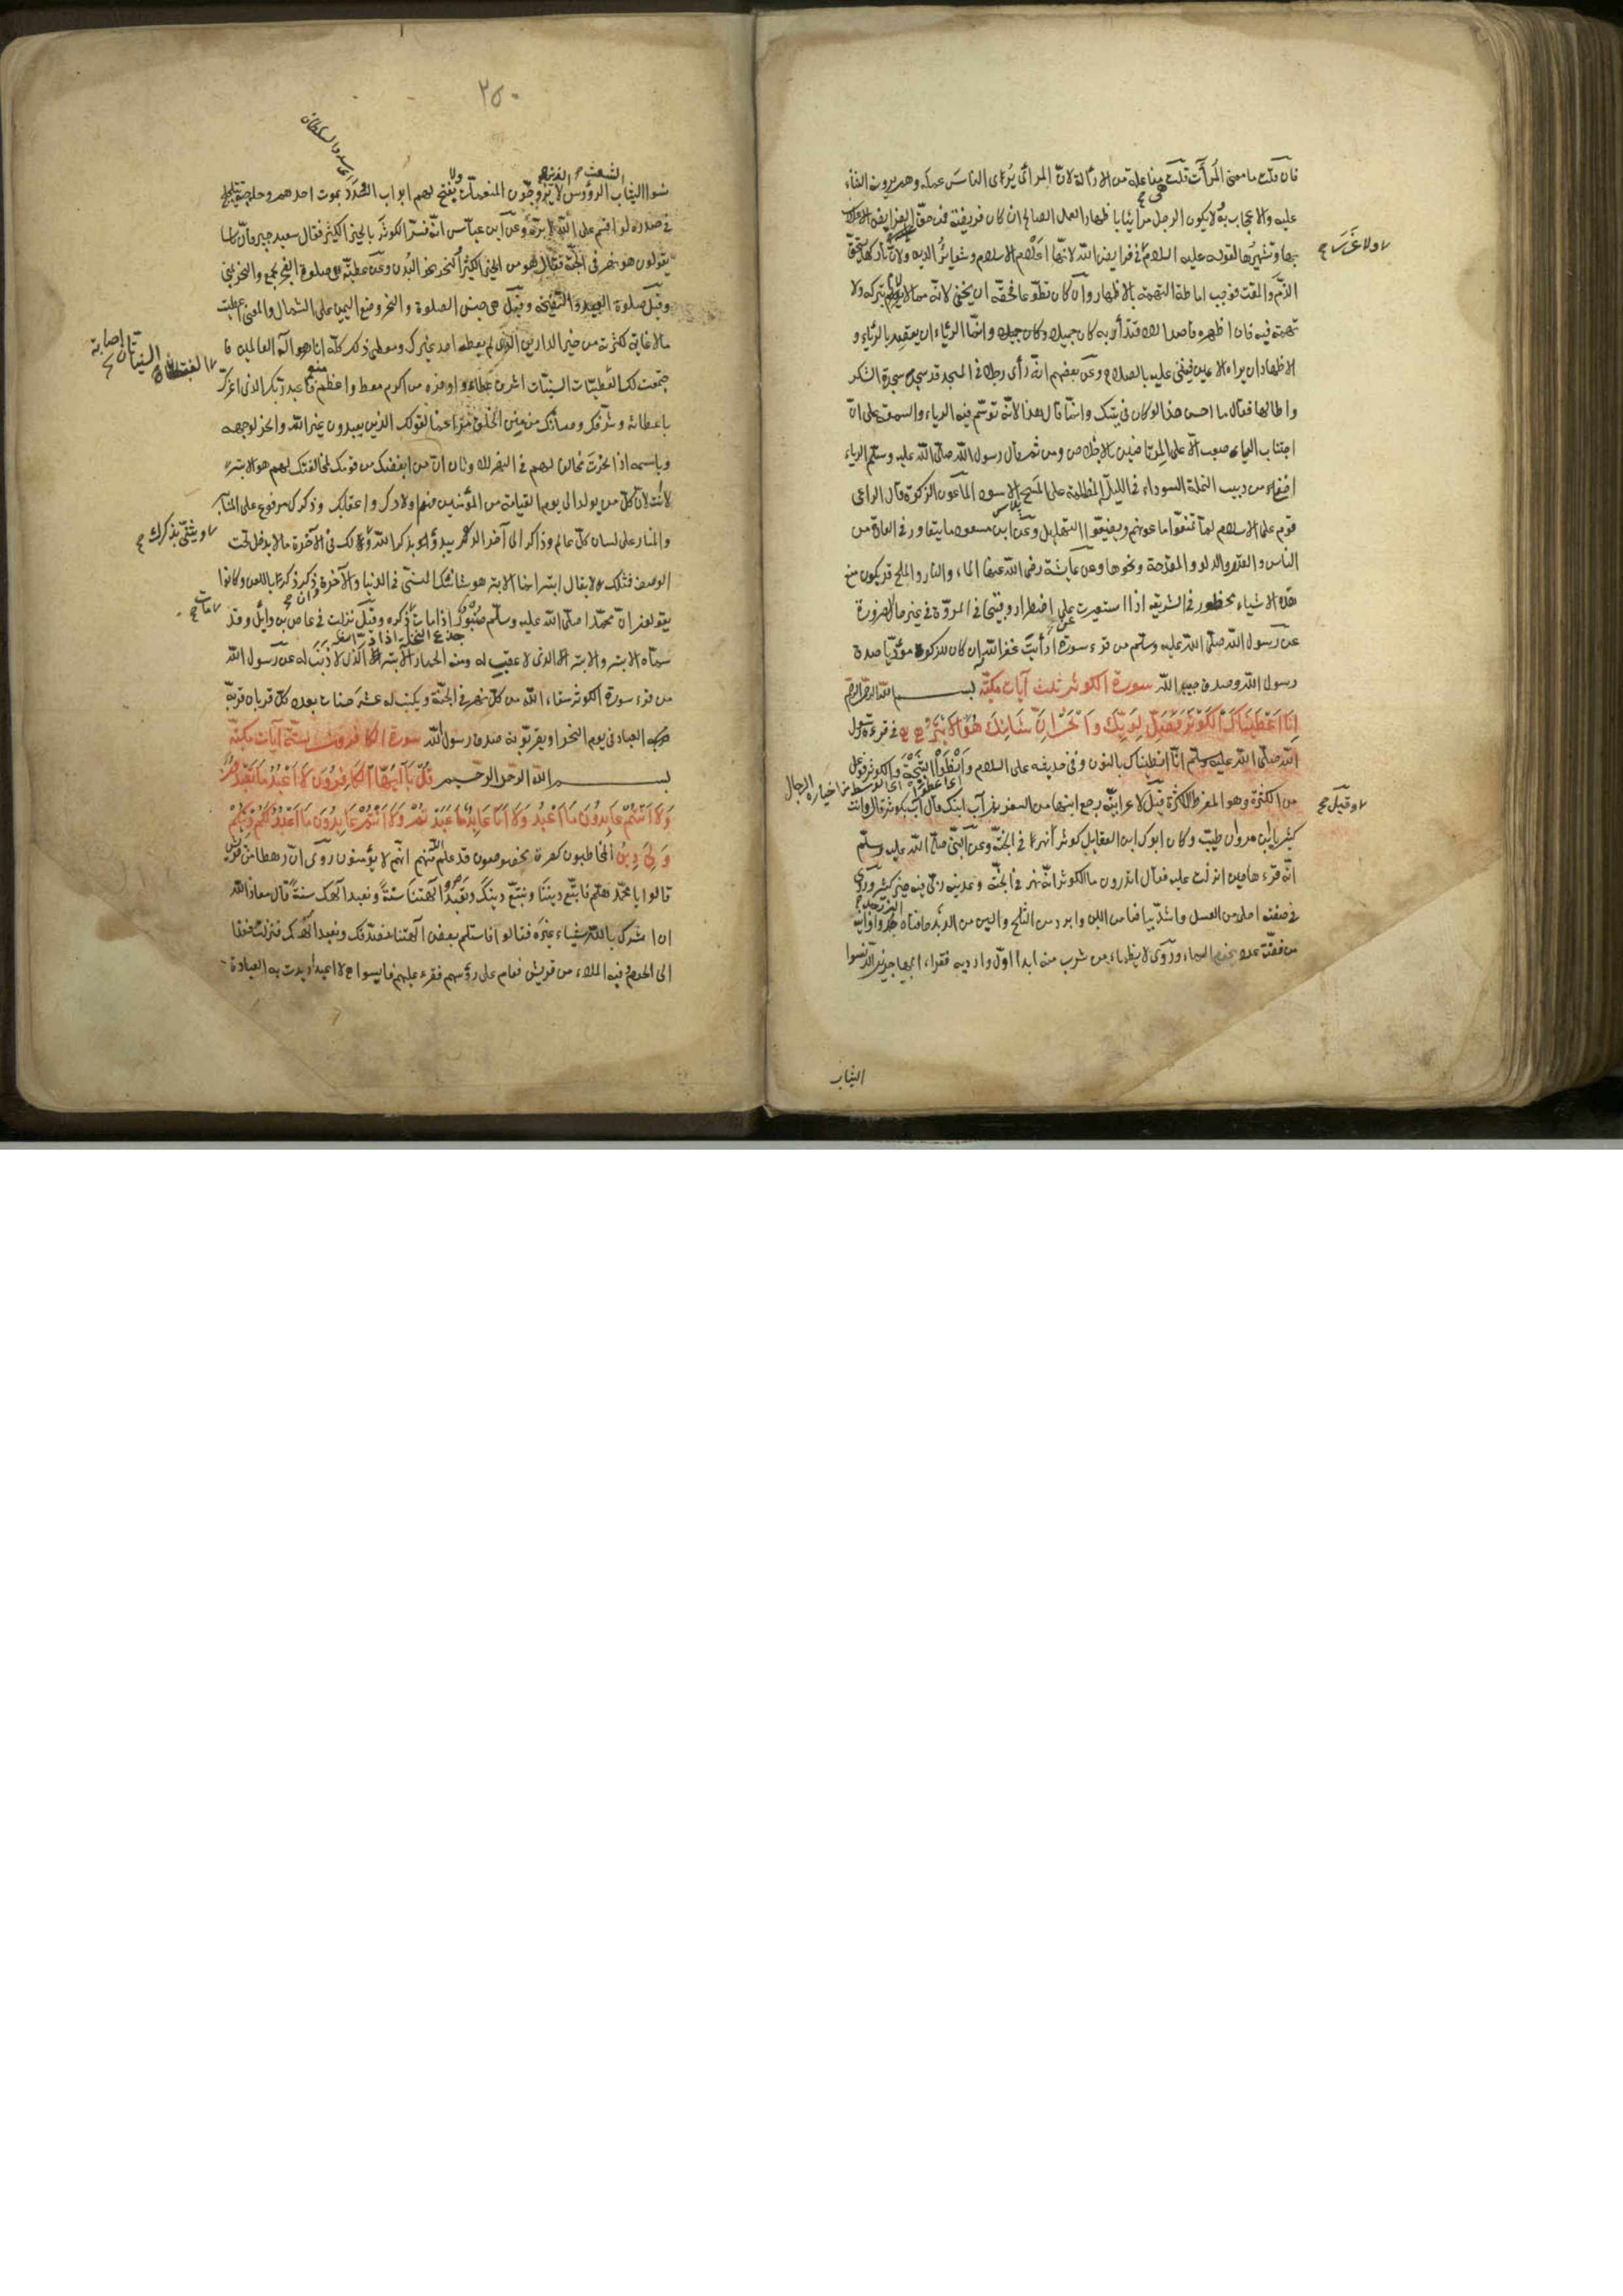 فان قلت ما معنى المرأآت قلت هى مفاعلة من الاراءة لانّ المرائى يُرى الناس عمله وهم يرونه الثناء
عليه والاعجاب به ولا يكون الرجل مرائيا باظهار العمل الصالح ان كان فريضة فمن حقّ الفرايض الاعلان
بها وتشهيرها لقوله عليه السلام ولا غمة فى فرايض الله لانّها اعلام الاسلام وشعائر الدين ولانّ تاركها يستحقّ
الذمّ والمقت فوجب اماطة التهمة بالاظهار وان كان تطوّعا فحقّه ان يخفى لانّه مما لا يلام بتركه ولا
تهمة فيه فان اظهره قاصدا للاقتداء به كان جميلا وانّما الرياء ان يقصد بالرياء و
الاظهار ان يراه الاعين فيثنى عليه بالصلاح وعن بعضهم انّه رأى رجلا فى المسجد قد سجد سجدة الشكر
واطالها فقال ما احسن هذا لو كان فى بيتك وانّما قال هذا لانّه توسّم فيه الرياء والسمعة على انّ
اجتناب الرياء صعب الّا على المرتاضين بالاخلاص ومن ثم قال رسول الله صلّى الله عليه وسلّم الرياء
اخفى من دبيب النملة السوداء فى الليلة المظلمة على المسح الاسود الماعون الزكوة قال الراعى
قوم على الاسلام لمّا يمنعوا ماعونهم ويضيّعوا التهليل وعن ابن مسعود ما يتعاور فى العادة من
الناس والقدر والدلو والمقدحة ونحوها وعن عايشة رضى الله عنها الماء والنار والملح قد يكون منع
هذه الاشياء محظورا فى الشريعة اذا استعيرت على اضطرار وقبيحا فى المروّة فى غير حال الضرورة
عن رسول الله صلّى الله عليه وسلّم من قرء سورة أرأيت غفر الله ان كان للزكوة مؤدّيا صدق
رسول الله وصدق حبيب الله سورة الكوثر ثلث آيات مكيّة بسم الله الرحمن الرحيم
انّا اعطيناك الكوثر فصلّ لربّك وانحر انّ شانئك هو الابتر فى قرءة رسول
الله صلّى الله عليه وسلّم انّا انطيناك بالنون وفى حديثه على السلام وانطوا الثبجة والكوثر فوعل
من الكثرة وهو المفرط الكثرة وقيل لاعرابيّة رجع ابنها من السفر بم آب ابنك قالت آب بكوثر قال وانت
كثير يا ابن مروان طيّب وكان ابوك ابن العقايل كوثرا نهر فى الجنّة وعن النبىّ صلّى الله عليه وسلّم
انّه قرءها حين انزلت عليه فقال اتدرون ما الكوثر انّه نهر فى الجنّة وعدنيه ربّى فيه خير كثير وروى
فى صفته احلى من العسل واشدّ بياضا من اللبن وابرد من الثلج والين من الزبد حافتاه الزبرجد واوانيه
من فضّة عدد نجوم السماء وروى لا يظمأ من شرب منه ابدا اوّل وارديه فقراء المهاجرين الدنسوا
ولا غمة صح
وقيل صح
اى اعطوا اى الوسط لا من خياره الرجال
الثياب
٢٥٠
الثياب الشعث الرؤس لا يزوّجون المنعمات ولا يفتح لهم ابواب السدد يموت احدهم وحاجته تتلجلج
فى صدره لو اقسم على الله لابرّه وعن ابن عباس انّه فسّر الكوثر بالخير الكثير فقال سعيد جبير فانّ ناسا
يقولون هو نهر فى الجنّة فقال هو من الخير الكثير والنحر نحر البدن وعن عطيّة هى صلوة الفجر بجمع والنحر بمنى
وقيل صلوة العيد والتضحية وقيل هى جنس الصلوة والنحر وضع اليمين على الشمال والمعنى اعطيت
مالا غاية لكثرته من خير الدارين الذى لم يعطه احد غيرك ومعطى ذلك كلّه انا اله العالمين فا
جتمعت لك الغبطتان السنيّتان اصابة اشرف عطاء واوفره من اكرم معط واعظم منعم فاعبد ربّك الذى اعزّك
باعطائه وشرّفك وصانك من منن الخلق مراغما لقومك الذين يعبدون غير الله وانحر لوجهه
وباسمه اذا نحرت مخالفا لهم فى النحر للاوثان انّ من ابغضك من قومك لمخالفتك لهم هو الابتر
لا انت لانّ كلّ من يولد الى يوم القيامة من المؤمنين فهم اولادك واعقابك وذكرك مرفوع على المنابر
والمنار على لسان كلّ عالم وذاكر الى آخر الدهر يبدؤ بذكر الله ويثنّى بذكرك ولك فى الآخرة ما لا يدخل تحت
الوصف فمثلك لا يقال ابتر انّما الابتر هو شانئك المنسىّ فى الدنيا والآخرة وان ذكر ذكر باللعن وكانوا
يقولون انّ محمّدا صلّى الله عليه وسلّم صنبور اذا مات مات ذكره وقيل نزلت فى عاص بن وائل وقد
سمّاه الابتر والابتر الذى لا عقب له ومنه الحمار الابتر الذى لا ذنب له عن رسول الله
من قرء سورة الكوثر سقاه الله من كلّ نهر فى الجنّة ويكتب له عشر حسنات بعدد كلّ قربان قربه
العباد فى يوم النحر او يقربونه صدق رسول الله سورة الكافرون ستّ آيات مكيّة
بسم الله الرحمن الرحيم قل يا ايّها الكافرون لا اعبد ما تعبدون
ولا انتم عابدون ما اعبد ولا انا عابد ما عبدتم ولا انتم عابدون ما اعبد لكم دينكم
ولى دين المخاطبون كفرة مخصوصون قد علم الله منهم انّهم لا يؤمنون روى انّ رهطا من قريش
قالوا يا محمّد هلمّ فاتّبع ديننا ونتّبع دينك وتعبد آلهتنا سنة ونعبد الهك سنة قال معاذ الله
ان اشرك بالله شيئاء غيره فقالوا فاستلم بعض آلهتنا نصدّقك ونعبد الهك فنزلت فغدا
الى الحرم وفيه الملاء من قريش فقام على رؤسهم فقرء عليهم فايسوا لا اعبد اريدت به العبادة
ويثنّى بذكرك صح
مات صح